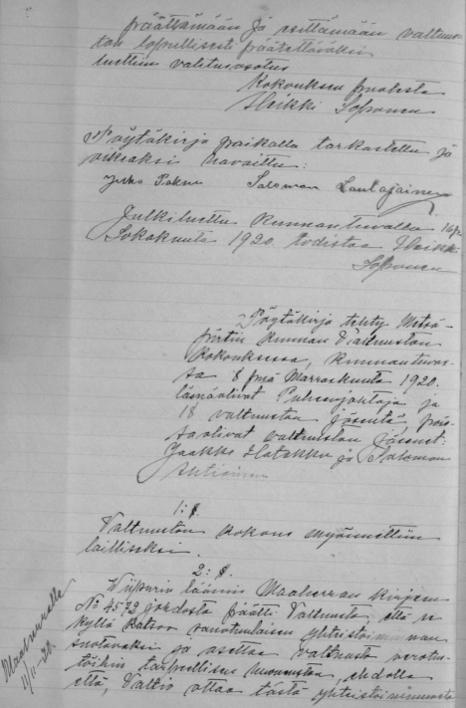 päättämään ja esittämään valtuus-
ton lopullisesti päätettäväksi
luettiin valitusosotus
Kokouksen puolesta
Heikki Loponen
Pöytäkirja paikalla tarkastettu ja
oikeaksi havaittu:
Salomon Laulajainen
Julkiluettu Kunnantuvalla 16 p:
Lokakuuta 1920 todistaa Heikki
Loponen
Pöytäkirja tehty Metsä-
pirtin Kunnan Valtuuston
Kokouksessa, Kunnantuvas-
sa 8 p:nä Marraskuuta 1920.
läsnäolivat Puheenjohtaja ja
18 valtuuston jäsentä, pois-
saolivat valtuuston jäsenet:
Jaakko Hatakka ja Salomon
Antiainen
1: §.
Valtuuston kokous myönnettiin
lailliseksi.
2: §.
Wiipurin läänin Maaherran kirjeen
No 4572 johdosta päätti Valtuusto, että se
kyllä katsoo yhteistoiminnan
suotavaksi ja asettaa valtuusto
toihin tarpeellisen ehdolla
että, Valtio ottaa tästä yhteistoiminnasta
Maaherralle
11/11-20.